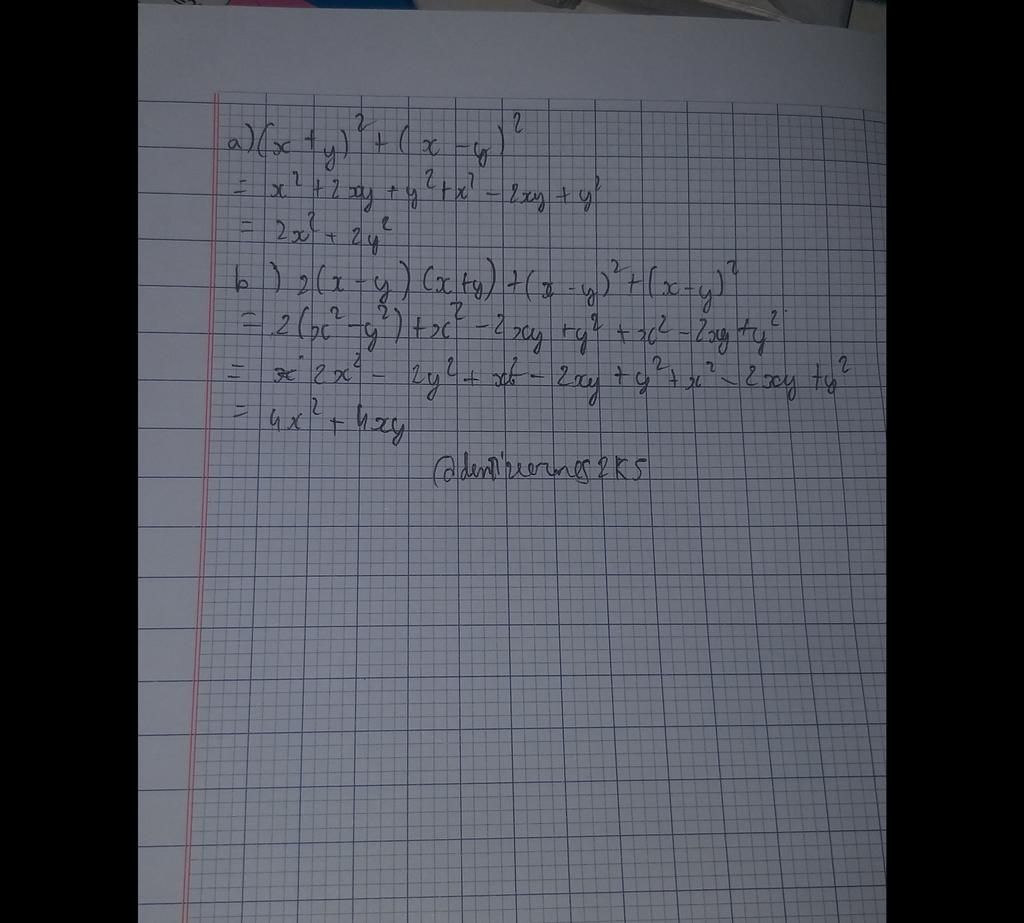 a) (x + y)² + (x - y)²
= x² + 2xy + y² + x² - 2xy + y²
= 2x² + 2y²
b) 2(x - y) (x + y) + (x - y)² + (x - y)²
= 2(x² - y²) + x² - 2xy + y² + x² - 2xy + y²
= 2x² - 2y² + x² - 2xy + y² + x² - 2xy + y²
= 4x² + 4xy